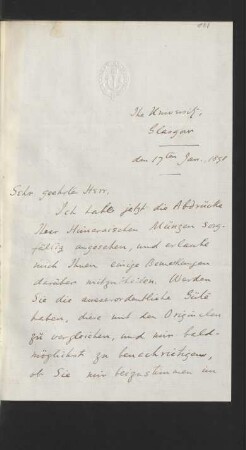 The University,
Glasgow
den 17ten Jan. 1898
Sehr geehrte Herr,
Ich habe jetzt die Abdrücke
Ihrer Himerischen Münzen sorg-
fältig angesehen, und erlaube
mich Ihnen einige Bemerkungen
darüber mitzutheilen. Werden
Sie die ausserordentliche Güte
haben, diese mit den Originalen
zu vergleichen, und mir bald-
möglichst zu benachrichtigen,
ob Sie mir beizustimmen im